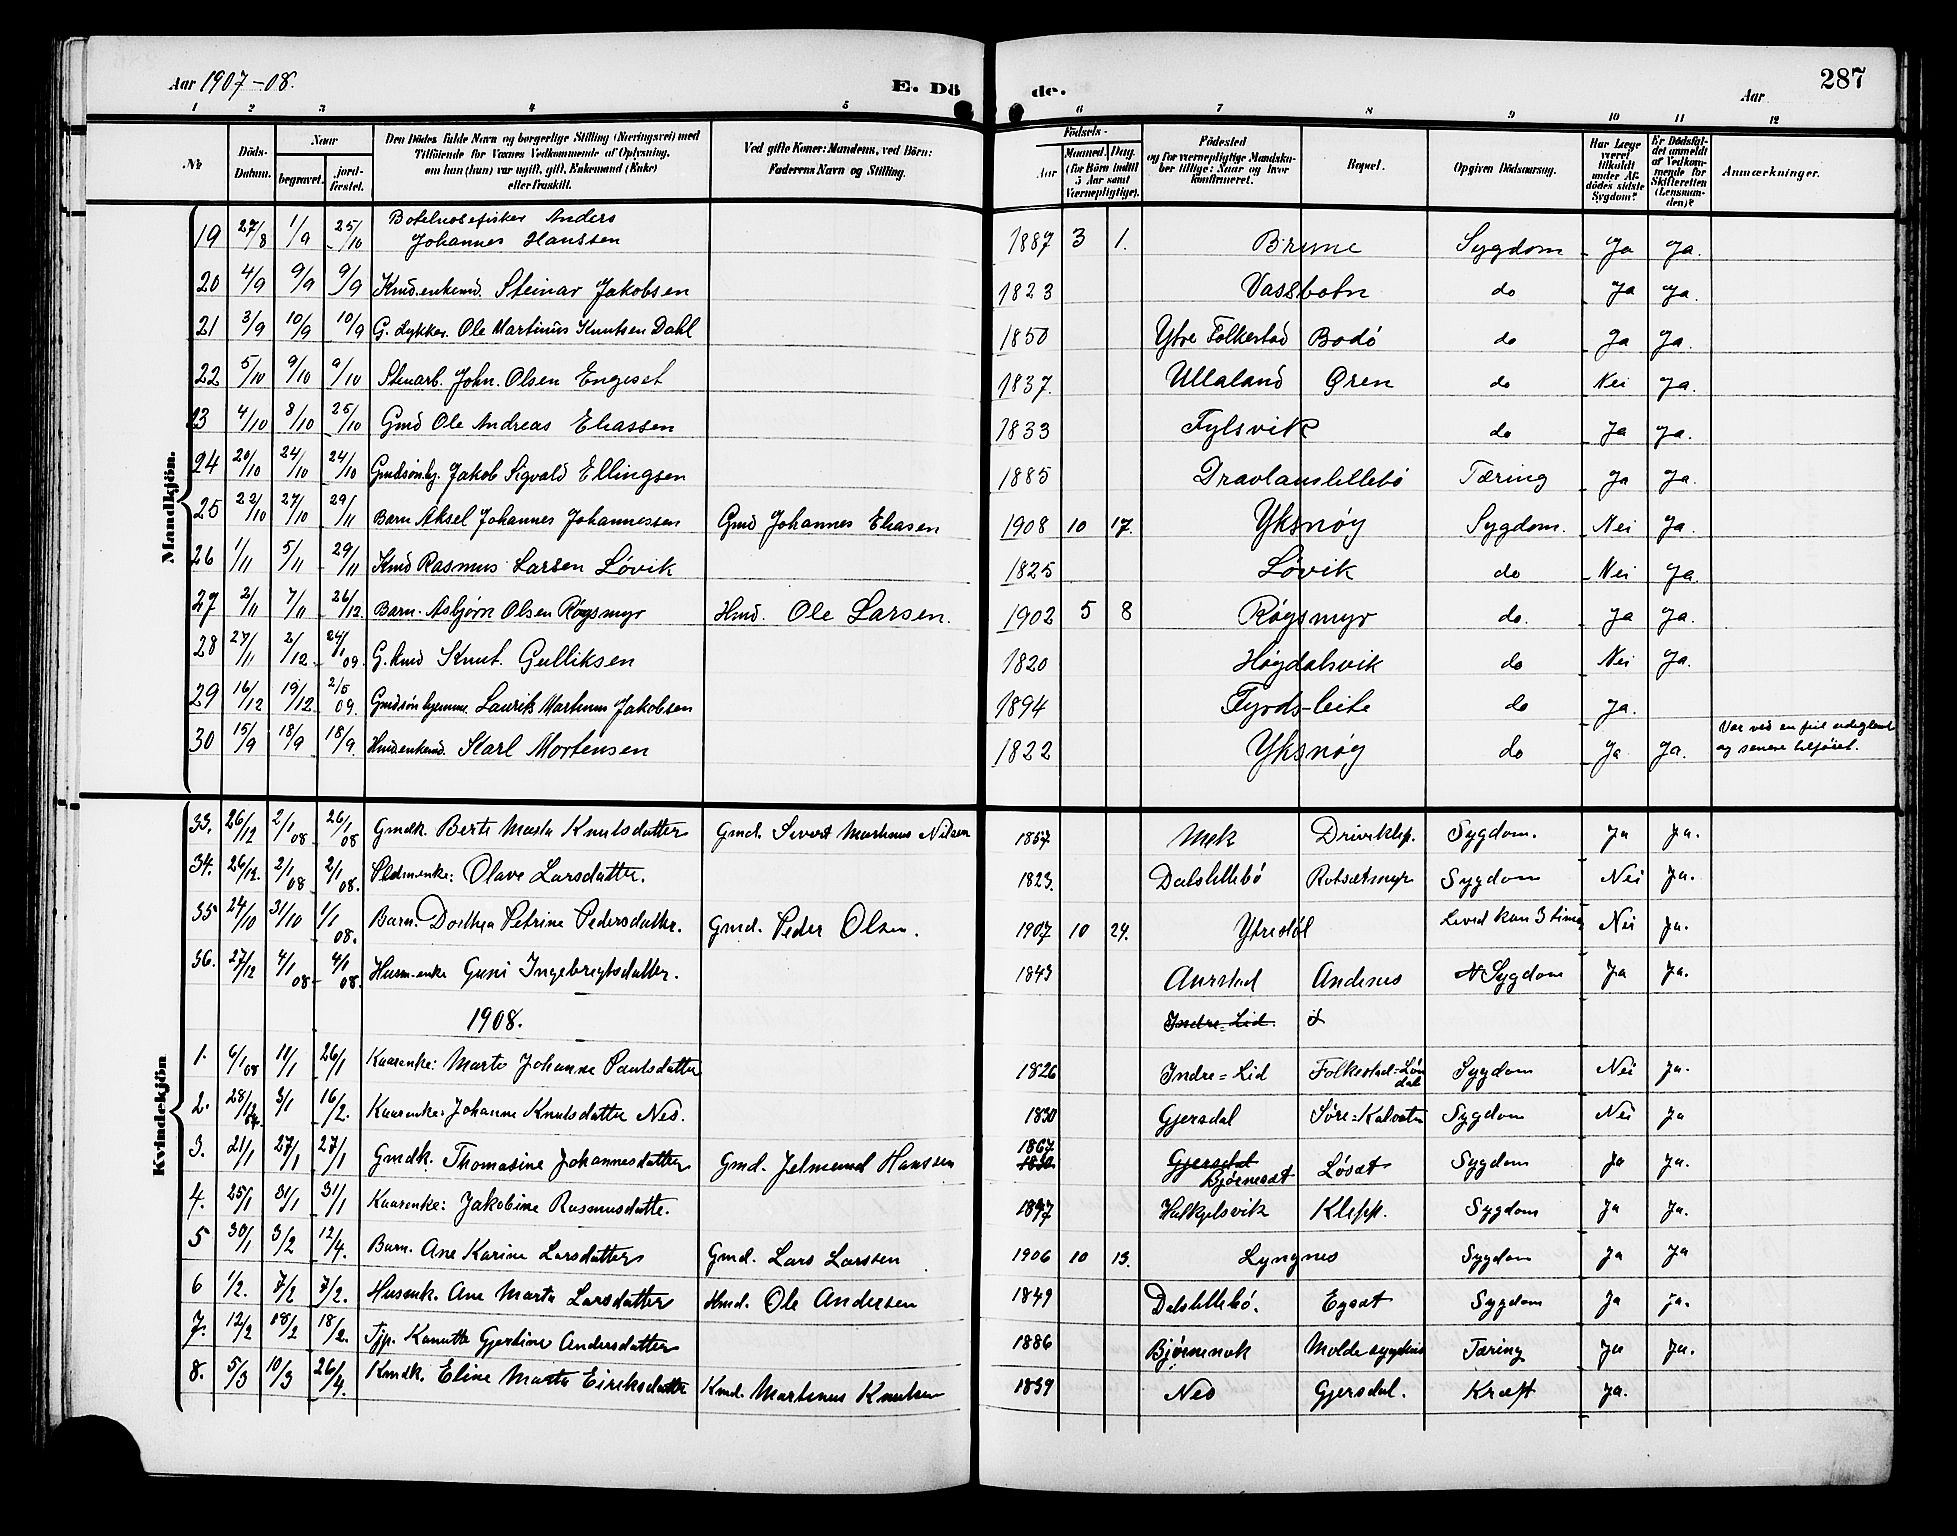 Aar 1907-08.
E. Dö
de.
Aar
287
1 2 3 4 5 6 7 8 9 10 11 12
№
Döds-Datum.
Naar
begravet.
jord-fæstet.
Den Dödes fulde Navn og borgerlige Stilling (Næringsvei) med
Tilföiende for Voxnes Vedkommende af Oplysning,
om hun (han) var ugift, gift, Enkemand (Enke)
eller fraskilt.
Ved gifte Koner: Mandens, ved Börn:
Faderens Navn og Stilling.
Födsels-
Aar
Maaned. Dag.
(for Börn indtil
5 Aar samt
Værnepligtige).
Födested
og for værnepligtige Mandska-
ber tillige: Naar og hvor
konfirmeret.
Bopæl.
Opgiven Dödsaarsag.
Har Læge
været
tilkaldt
under Af-
dödes sidste
Sygdom?
Er Dödsfal-
det anmeldt
af Vedkom-
mende for
Skifteretten
(Lensman-
den)?
Anmærkninger.
Mandkjön.
19 27/8 1/9 25/10 Anders
Johannes Hanssen 1887 3 1. Brune Sygdom Ja Ja.
20 4/9 9/9 9/9 Steinar Jakobsen 1823 Vassbotn do Ja Ja.
21 3/9 10/9 10/9 G. Lykkes. Ole Martinus Knutsen Dahl 1850 Ytre Folkestad Bodö do Ja Ja.
22 5/10 9/10 9/10 Stuarb. John. Olsen Engeset 1837. Ullaland Øren do Nei Ja.
23 4/10 8/10 25/10 Gmd Ole Andreas Eliassen 1833 Fylsvik do Ja Ja.
24 20/10 24/10 24/10 Jakob Sigvald Ellingsen 1885 Dravlauslillebö Tæring Ja Ja.
25 22/10 27/10 29/11 Barn Aksel Johannes Johannessen Gmd Johannes Eliasen 1908 10 17. Yksnøy Sygdom. Nei Ja.
26 1/11 5/11 29/11 Kmd Rasmus Larsen Løvik 1825 Løvik do Nei Ja
27 2/11 7/11 26/12. Barn. Asbjørn Olsen Røysmyr Hmd. Ole Larsen. 1902 5 8 Røysmyr do. Ja Ja.
28 27/11 2/12 24/1 09. Knut. Gulliksen 1820 Høydalsvik do Nei Ja.
29 16/12 19/12 2/5 09. Gmdsøn hjemme. Laurits Martinus Jakobsen 1894 Fyrds-leite do Ja.
30 15/9 18/9 18/9. Karl Mortensen 1822 Yksnøy do Ja Ja. Var ved en feil udeglemt
og senere tilføiet.
Kvindekjön
33. 26/12 2/1 08 26/1 08 Gmdk. Berte Marta Knutsdatter Gmd. Sivert Martinus Nilsen 1857 Mek Driveklep. Sygdom. Ja Ja.
34. 26/12. 2/1 08 2/1 08. Olave Larsdatter. 1823. Dalslillebö Rotsætmyr Sygdom Nei Ja.
35 24/10 31/10 1/1 08. Barn. Dorthea Petrine Pedersdatter. Gmd. Peder Olsen. 1907 10 24. Ytrestøl Leved kun 3 timer Nei Ja.
36. 27/12 4/1 08 4/1 08. Husm-enke Guni Ingebregtsdatter. 1843 Aurstad Andenes Sygdom Ja Ja.
1908.
Indre-Lid.
1. 6/1 08 11/1 26/1 Kaarenke: Marte Johanne Paulsdatter 1826 Indre-Lid Folkestad-Løndal Sygdom Nei Ja.
2. 28/12 3/1 16/2. Kaarenke: Johanne Knutsdatter Nes. 1830 Gjersdal Søre-Kalvatn Sygdom Nei Ja
3. 21/1 27/1 27/1 Gmdk. Thomasine Johannesdatter Gmd. Jelmund Hanssen 1867 1830 Gjersdal Bjørnesæt Løsæt Sygdom Ja Ja.
4. 25/1 31/1 31/1 Kaarenke: Jakobine Rasmusdatter. Halkjelsvik Klepp. Sygdom Ja Ja.
5 30/1 3/2 12/4. Barn. Ane Karine Larsdatter Gmd. Lars Larssen 1906 10 13. Lyngnes Sygdom Ja Ja
6 1/2. 7/2 7/2. Husmk. Ane Marta Larsdatter Hmd. Ole Andersen 1849 Dalslillebö. Eysæt Sygdom Ja Ja.
7. 12/2 18/2 18/2. Tjp. Kanutte Gjertine Andersdatter 1886 Bjørnenak Molde sygehus Tæring Ja Ja.
8. 5/3 10/3 26/4. Kmdk. Eline Marta Eiriksdatter Kmd. Martinus Knutsen 1839 Nes Gjersdal. Kræft Ja.